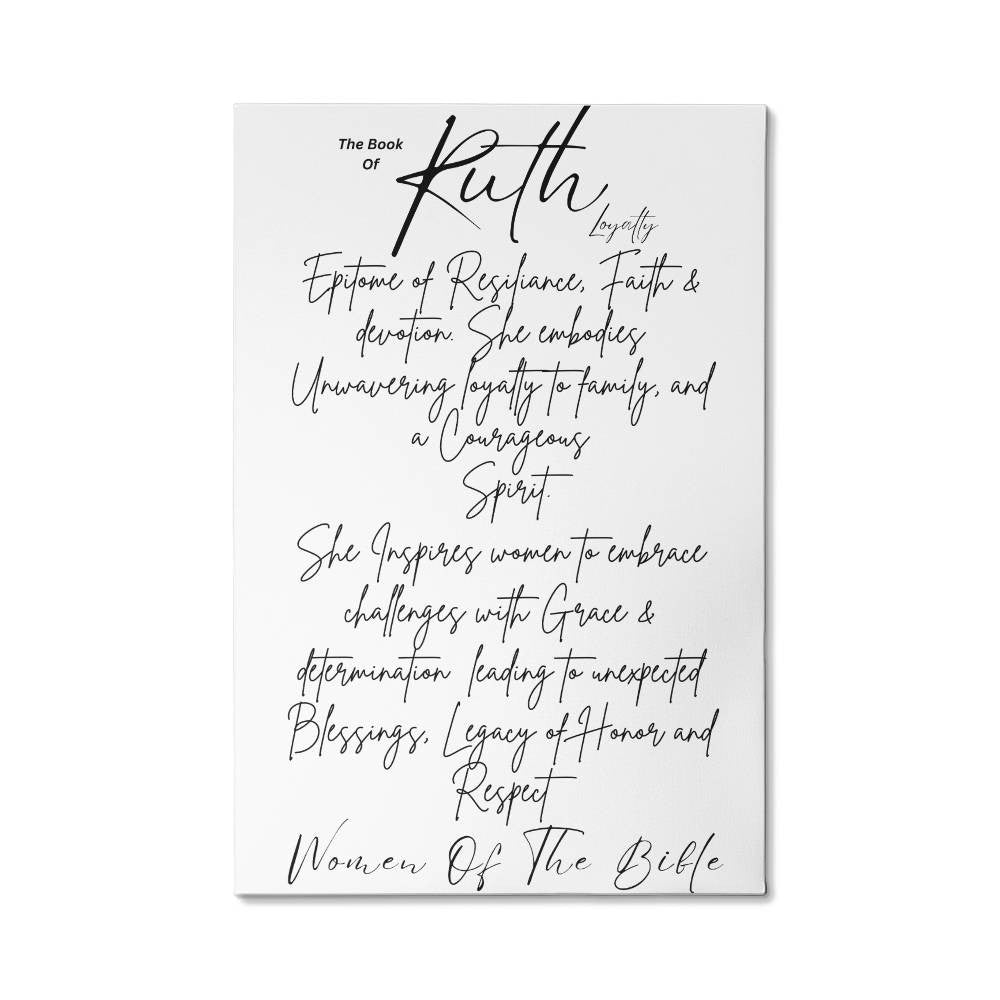 The Book
Of
Ruth
Loyalty
Epitome of Resiliance, Faith &
devotion. She embodies
Unwavering loyalty to family, and
a Courageous
Spirit.
She Inspires women to embrace
challenges with Grace &
determination leading to unexpected
Blessings, Legacy of Honor and
Respect
Women Of The Bible